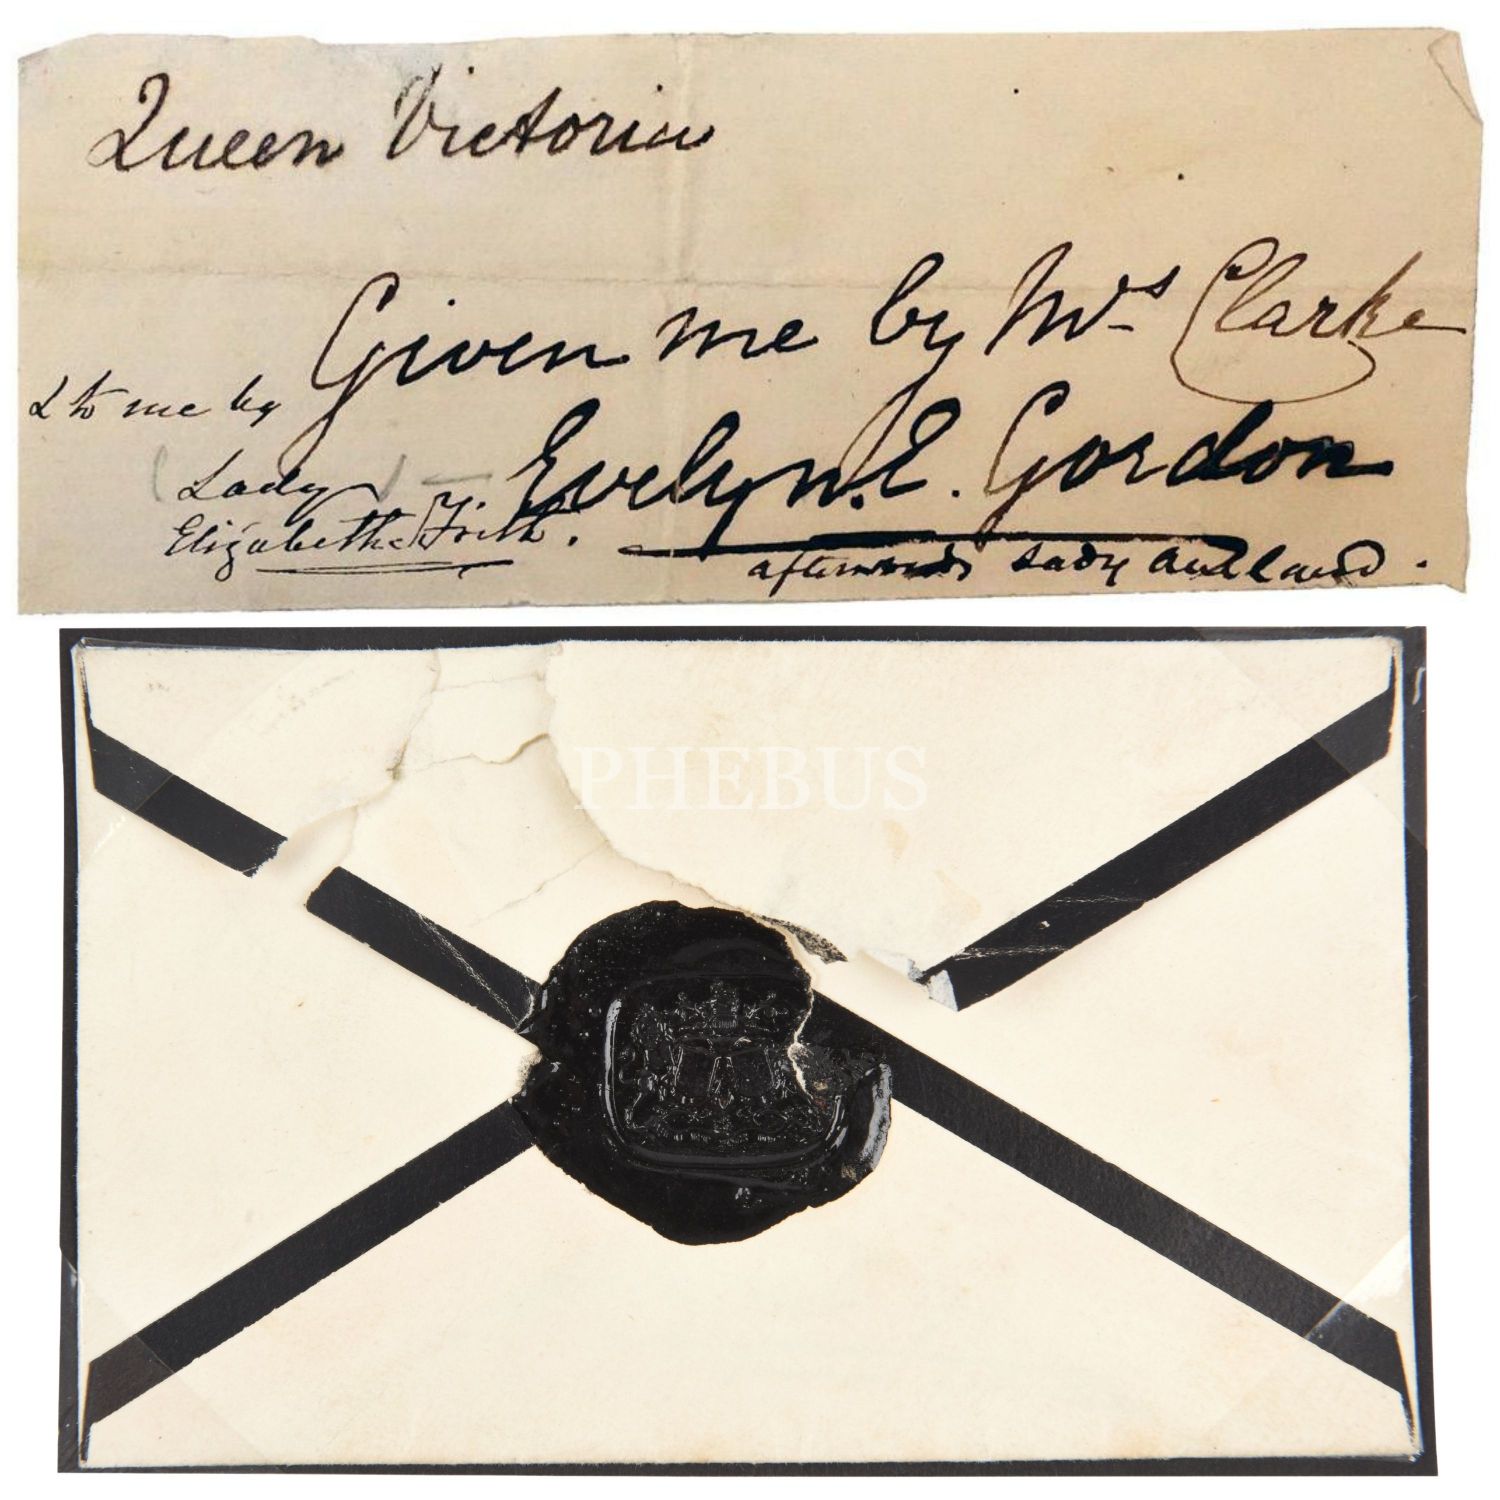 Queen Victoria
Given me by Mrs Clarke
& to me by
Evelyn. E. Gordon
Lady
Elizabeth Frith.
afterwards Lady Auckland.
PHEBUS